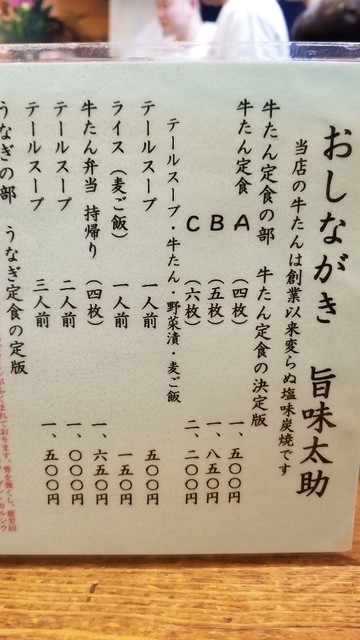 おしながき 旨味太助
当店の牛たんは創業以来変らぬ塩味炭焼です
牛たん定食の部 牛たん定食の決定版
牛たん定食 A (四枚) 一、五〇〇円
B (五枚) 一、八五〇円
C (六枚) 二、二〇〇円
テールスープ・牛たん・野菜漬・麦ご飯
テールスープ 一人前 五〇〇円
ライス (麦ご飯) 一人前 一五〇円
牛たん弁当 持帰り (四枚) 一、六五〇円
テールスープ 二人前 一、〇〇〇円
テールスープ 三人前 一、五〇〇円
うなぎの部 うなぎ定食の定版